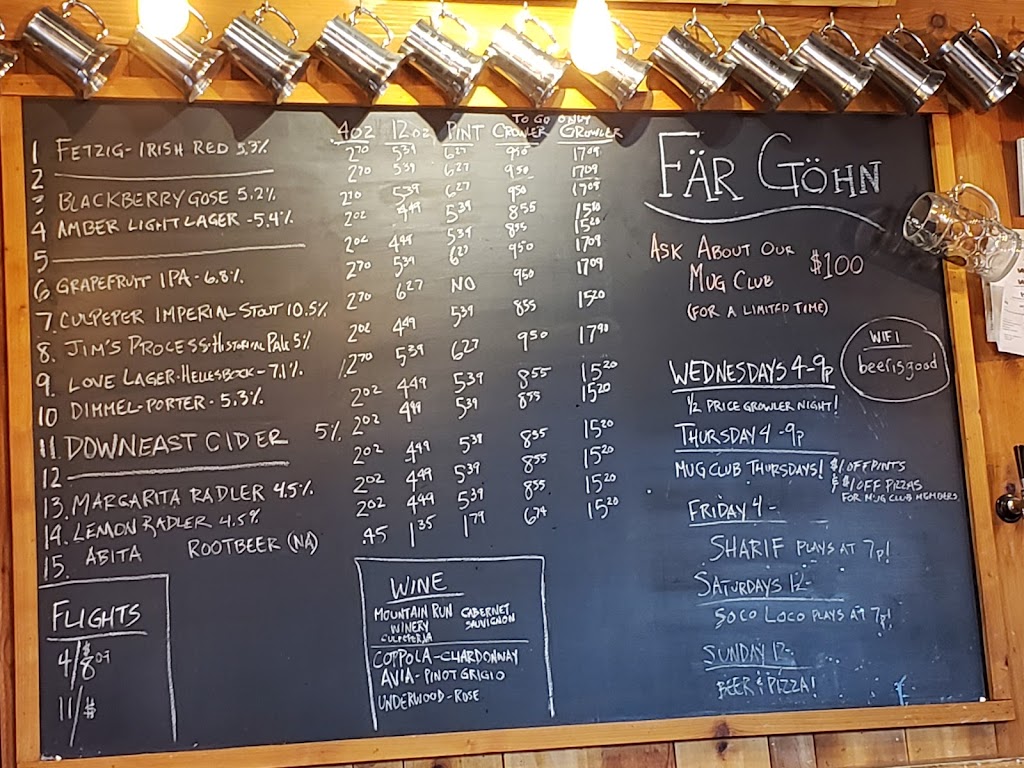 TO GO ONLY
4oz 12oz PINT CROWLER GROWLER
1 FETZIG - IRISH RED 5.3% 2.70 5.39 6.27 9.50 17.09
2 2.70 5.39 6.27 9.50 17.09
3 BLACKBERRY GOSE 5.2% 2.70 5.39 6.27 9.50 17.09
4 AMBER LIGHT LAGER - 5.4% 2.02 4.49 5.39 8.55 15.20
5 2.02 4.49 5.39 8.55 15.20
6 GRAPEFRUIT IPA - 6.8% 2.70 5.39 9.50 17.09
7. CULPEPER IMPERIAL STOUT 10.5% 2.70 6.27 NO 9.50 17.09
8. JIM'S PROCESS - HISTORICAL PALE 5% 2.02 4.49 5.39 8.55 15.20
9. LOVE LAGER - HELLESBOCK - 7.1% 2.70 5.39 6.27 9.50 17.90
10 DIMMEL - PORTER - 5.3% 2.02 4.49 5.39 8.55 15.20
11. DOWNEAST CIDER 5% 2.02 4.49 5.39 8.55 15.20
12 2.02 4.49 5.39 8.55 15.20
13. MARGARITA RADLER 4.5% 2.02 4.49 5.39 8.55 15.20
14. LEMON RADLER 4.5% 2.02 4.49 5.39 8.55 15.20
15. ABITA ROOTBEER (NA) .45 1.35 1.79 6.74 15.20
FLIGHTS
4/$8.09
11/$
WINE
MOUNTAIN RUN WINERY CULPEPER VA CABERNET SAUVIGNON
COPPOLA - CHARDONNAY
AVIA - PINOT GRIGIO
UNDERWOOD - ROSE
FÄR GÖHN
ASK ABOUT OUR
MUG CLUB $100
(FOR A LIMITED TIME)
WIFI
beerisgood
WEDNESDAYS 4-9p
1/2 PRICE GROWLER NIGHT!
THURSDAY 4-9p
MUG CLUB THURSDAYS! $1 OFF PINTS
& $1 OFF PIZZAS
FOR MUG CLUB MEMBERS
FRIDAY 4-
SHARIF PLAYS AT 7p!
SATURDAYS 12-
SOCO LOCO PLAYS AT 7p!
SUNDAY 12-
BEER & PIZZA!